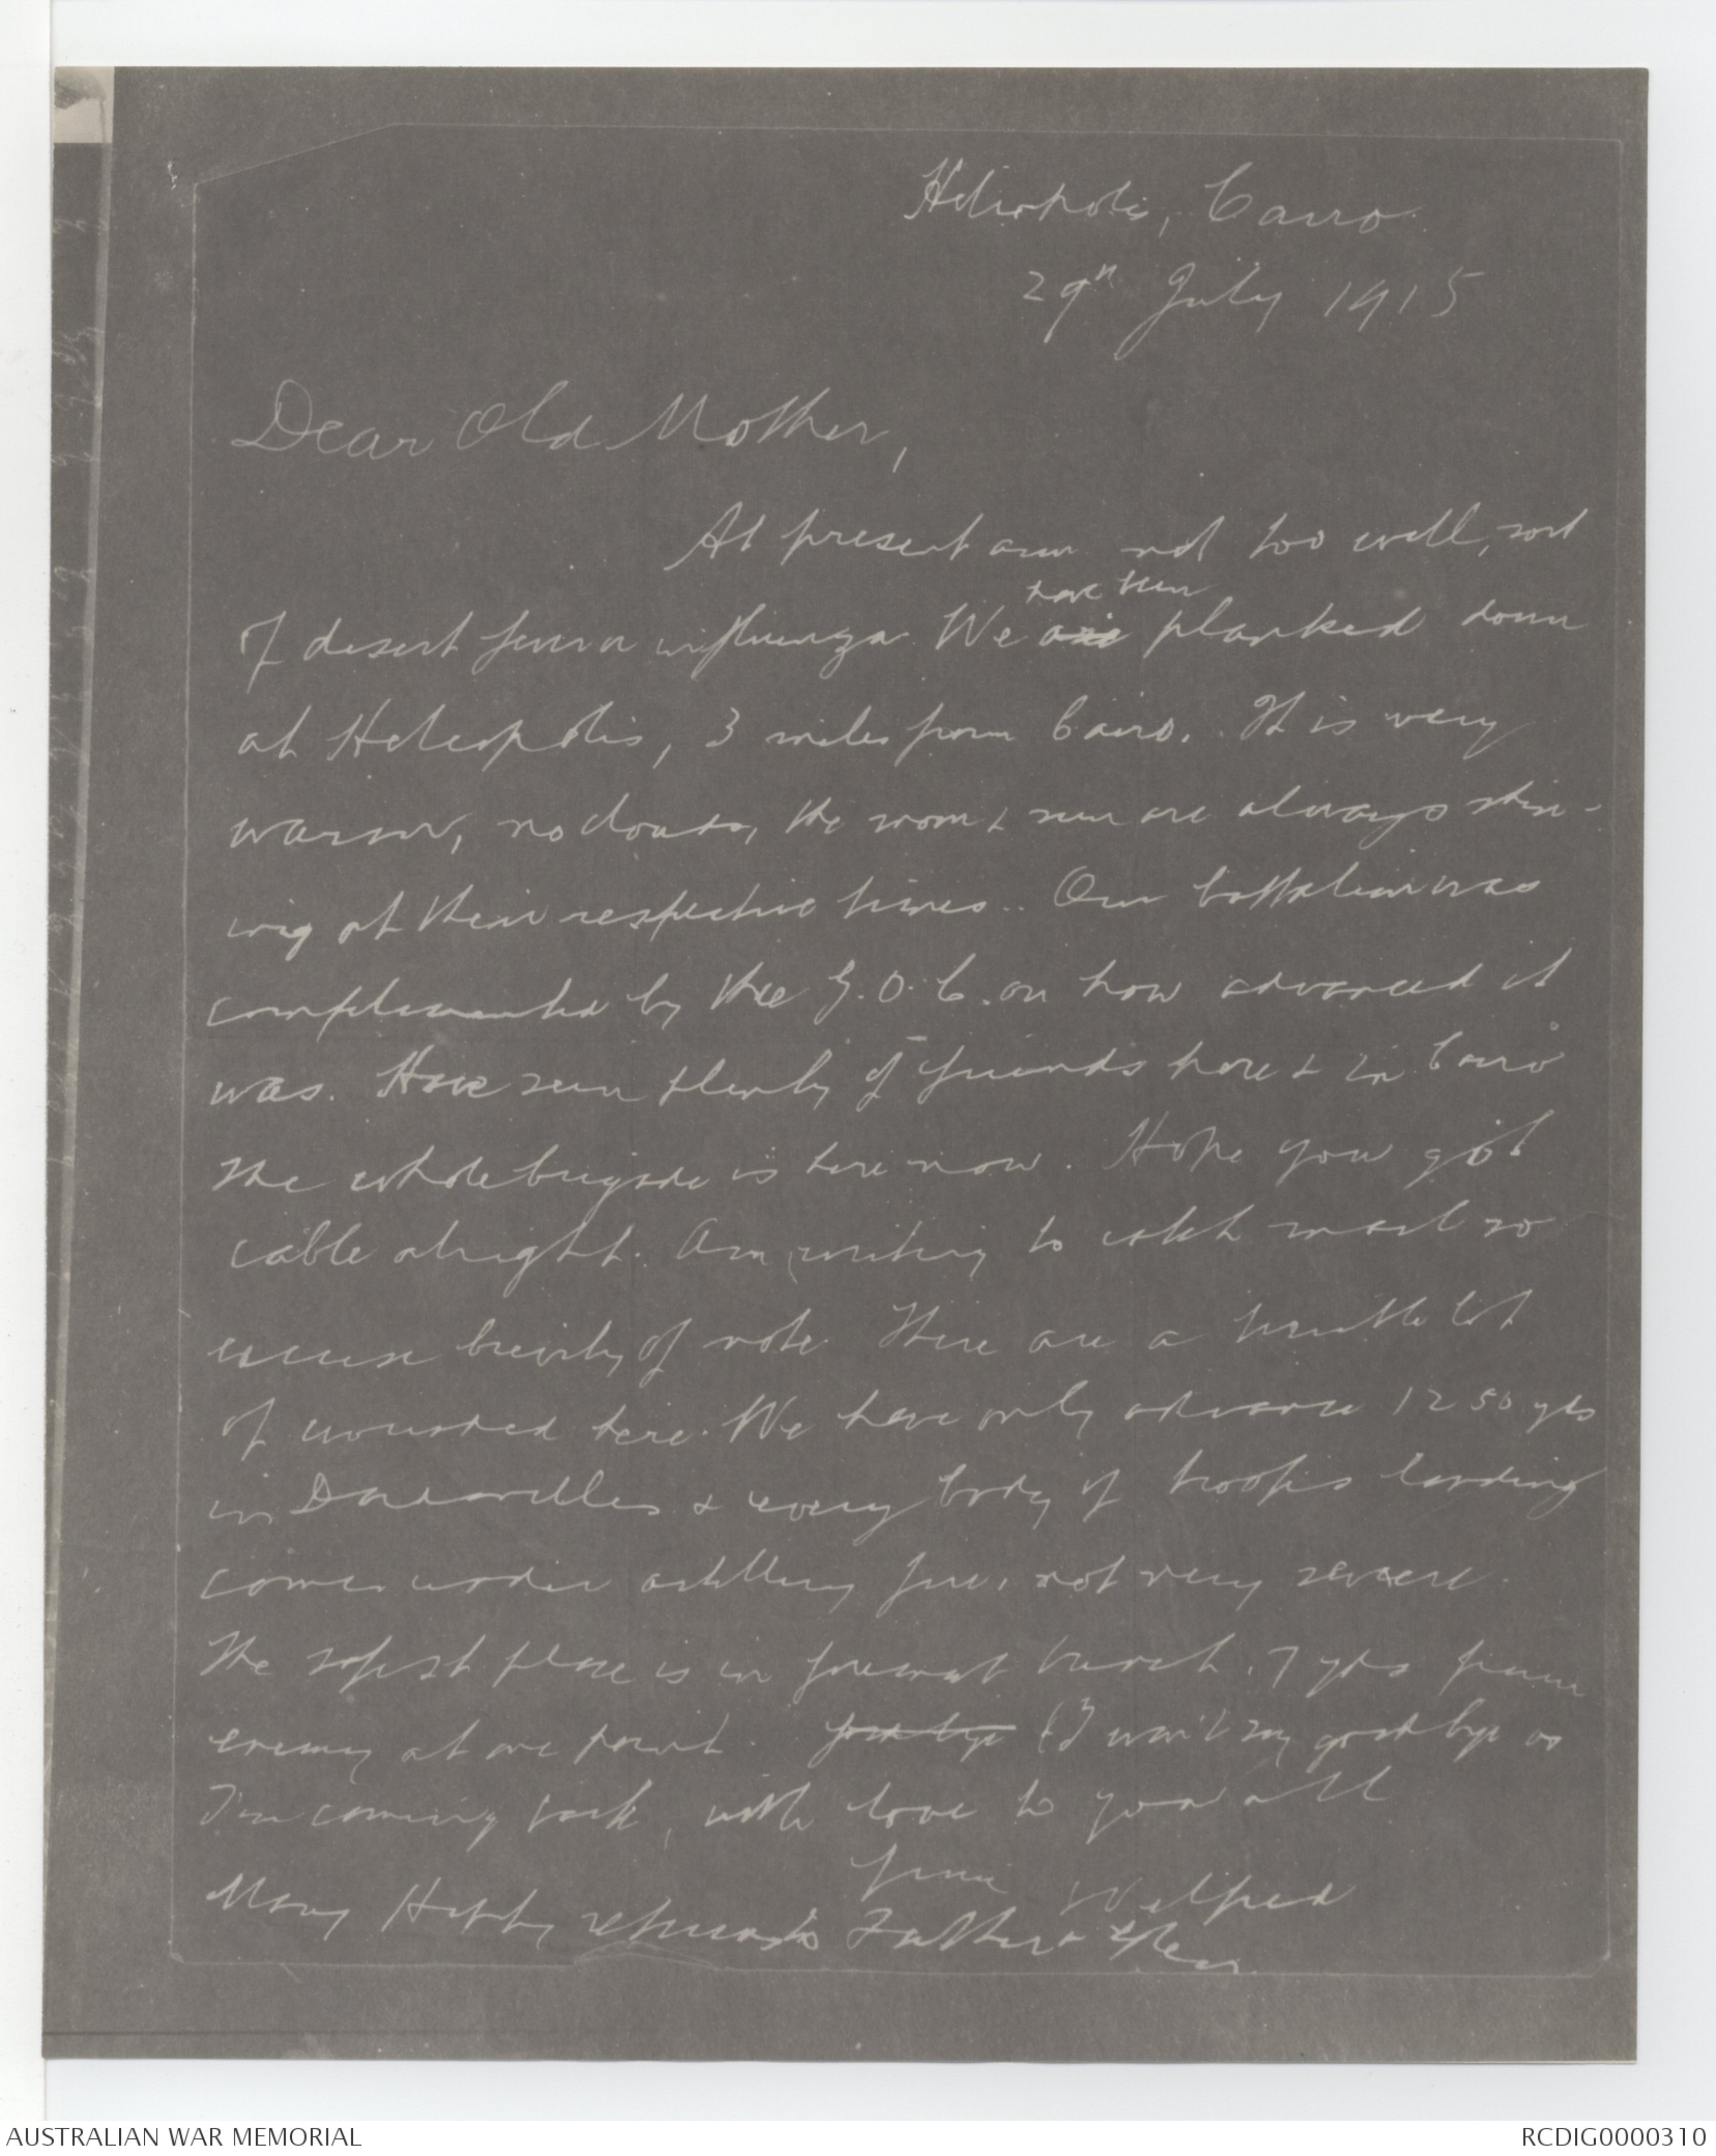 Heliopolis, Cairo.
29th July 1915
Dear Old Mother,
At present am not too well, sort
have been
of desert fever or influenza. We are planked down
at Heliopolis, 3 miles from Cairo. It is very
warm, no clouds, the moon & sun are always shin-
ing at their respective times.. Our battalion was
complimented by the G.O.C. on how advanced it
was. Have seen plenty of friends here & in Cairo
The whole brigade is here now. Hope you got
cable alright. Am writing to catch mail so
excuse brevity of note. There are a terrible lot
of wounded here. We have only advance 1250 yds
in Dardanelles & every body of troops landing
comes under artillery fire, not very severe.
The safest place is in foremost trench, 7 yds from
enemy at one point. good bye (I won't say good bye as
I'm coming back, with love to you all
from Wilfred
Many Happy returns to Father &
AUSTRALIAN WAR MEMORIAL
RCDIG0000310